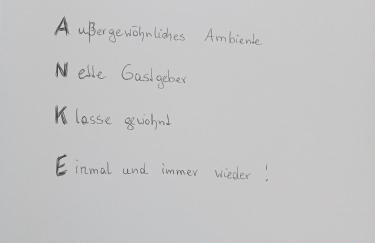 Außergewöhnliches Ambiente
Nette Gastgeber
Klasse gewohnt
Einmal und immer wieder!